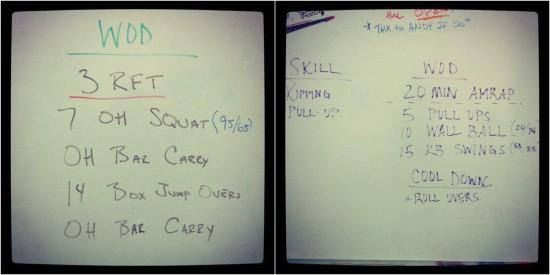 WOD
3 RFT
7 OH SQUAT (95/65)
OH BAR CARRY
14 BOX JUMP OVERS
OH BAR CARRY
the OPEN?
* TALK TO ANDY IF SO
SKILL
KIPPING
PULL-UP
WOD
20 MIN AMRAP
5 PULL UPS
10 WALL BALL (20/
15 KB SWINGS (53, 35)
COOL DOWN
* ROLL OVERS